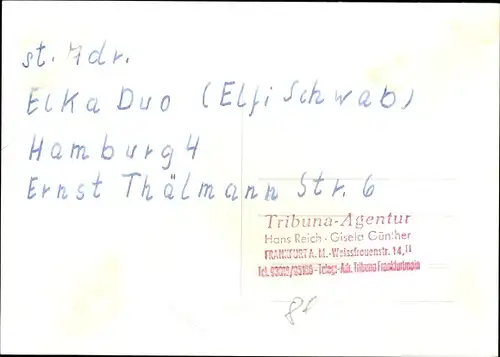 st. Adr.
Elka Duo (Elfi Schwab)
Hamburg 4
Ernst Thälmann Str. 6
Tribuna-Agentur
Hans Reich · Gisela Günther
FRANKFURT A. M. - Weissfrauenstr. 14, II
Telegr.-Adr. Tribuna Frankfurtmain